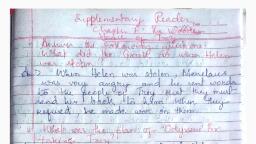 Supplementary Reader
Chapter
Answer the following questions
What did the Greeks do when Helen
was stolen
When Helen was stolen, Menelaus
was very angry and he sent words
to the people of Troy that they must
send her back to him. When they
refused, he made war on them.
What was the plan of for